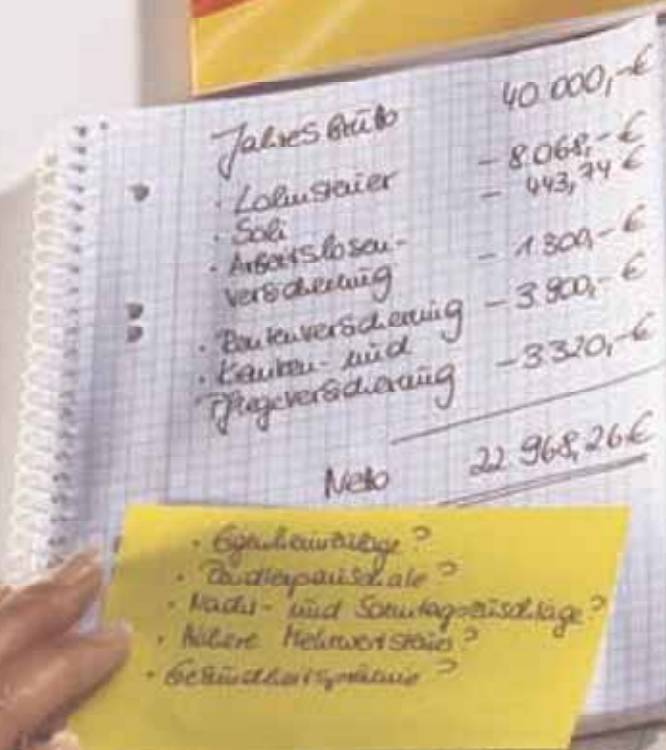 Jahresbrutto 40 000,-€
· Lohnsteuer - 8.068,-€
· Soli - 443,74 €
· Arbeitslosen-
versicherung - 1.300,-€
· Rentenversicherung - 3.900,-€
· Kranken- und
Pflegeversicherung - 3320,-€
Netto 22 968,26 €
· Eigenheimzulage?
· Pendlerpauschale?
· Nacht- und Sonntagszuschläge?
· Höhere Mehrwertsteuer?
· Gesundheitsprämie?